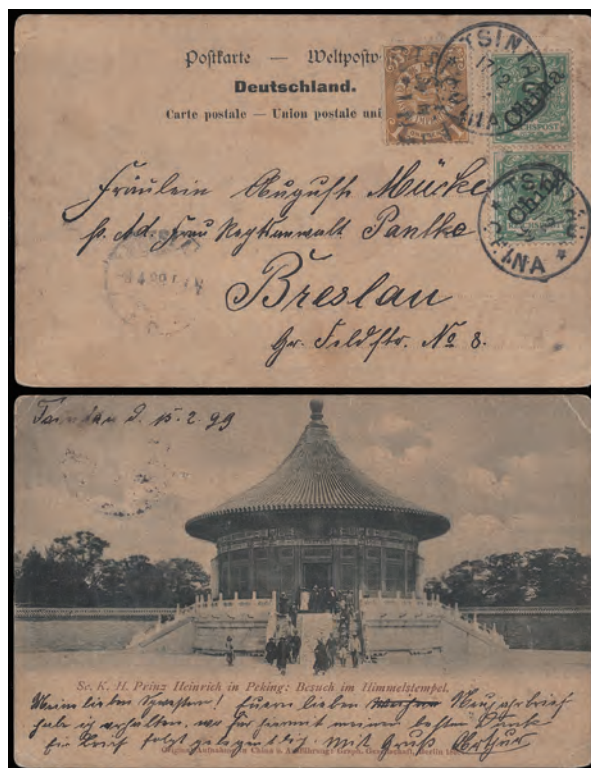 Postkarte — Weltpostv
Deutschland.
Carte postale — Union postale uni
TSINTAU
17/2
CHINA
China
REICHSPOST
TSINTAU
China
CHINA
Fräulein Auguste Mücke
p. Ad. Frau Rechtsanwalt Pantke
Breslau
Gr. Feldstr. No 8.
Tsintau d. 15.2.99
Se. K. H. Prinz Heinrich in Peking: Besuch im Himmelstempel.
Meine lieben Euern lieben Neujahrsbrief
habe ich erhalten, wofür hiermit meinen besten Dank
Ein Brief folgt gelegentlich. Mit Gruß Arthur
Original-Aufnahmen in China u. Ausführung: Graph. Gesellschaft, Berlin